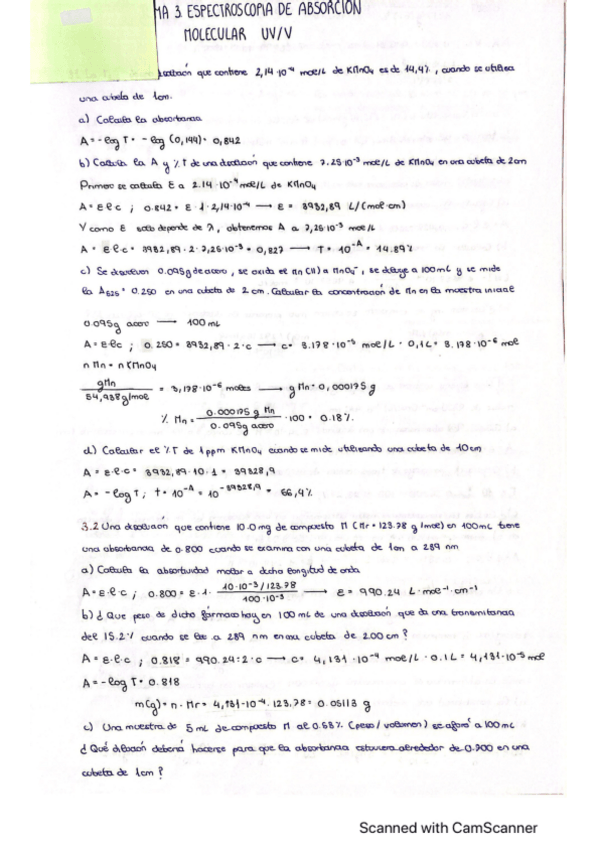 MA 3. ESPECTROSCOPIA DE ABSORCION
MOLECULAR UV/V
disolución que contiene 2,14·10⁻⁴ mol/L de KMnO₄ es de 14,4%, cuando se utiliza
una cubeta de 1cm.
a) Calcula la absorbancia
A = -log T = -log (0,144) = 0,842
b) Calcula la A y % T de una disolución que contiene 7.25·10⁻³ mol/L de KMnO₄ en una cubeta de 2cm
Primero se calcula E a 2.14·10⁻⁴ mol/L de KMnO₄
A = ε l c ; 0.842 = ε · 1 · 2,14·10⁻⁴ → ε = 3932,89 L/(mol·cm)
Y como E solo depende de λ, obtenemos A a 7,25·10⁻³ mol/L
A = ε·l·c = 3932,89 · 2 · 7,25·10⁻³ = 0,827 → T = 10^-A = 14.89%
c) Se disuelven 0.095g de acero, se oxida el Mn (II) a MnO₄⁻, se diluye a 100mL y se mide
la A₅₂₅ = 0.250 en una cubeta de 2 cm. Calcular la concentración de Mn en la muestra inicial
0.095g acero → 100 mL
A = ε l c ; 0.250 = 3932,89 · 2 · c → c = 3.178·10⁻⁵ mol/L · 0,1L = 3.178·10⁻⁶ mol
n Mn = n KMnO₄
gMn / 54,938g/mol = 3,178·10⁻⁶ moles → g Mn = 0,000175 g
% Mn = 0.000175 g Mn / 0.095g acero · 100 = 0.18%
d) Calcular el %T de 1ppm KMnO₄ cuando se mide utilizando una cubeta de 10cm
A = ε·l·c = 3932,89 · 10 · 1 = 39328,9
A = -log T ; T = 10^-A = 10^-39328,9 = 56,4%
3.2 Una disolución que contiene 10.0 mg de compuesto M (Mr = 123.78 g/mol) en 100mL tiene
una absorbancia de 0.800 cuando se examina con una cubeta de 1cm a 289 nm
a) Calcula la absortividad molar a dicha longitud de onda
A = ε·l·c ; 0.800 = ε · 1 · 10·10⁻³/123.78 / 100·10⁻³ → ε = 990.24 L·mol⁻¹·cm⁻¹
b) ¿Que peso de dicho fármaco hay en 100 mL de una disolución que da una transmitancia
del 15.2% cuando se lee a 289 nm en una cubeta de 2.00cm?
A = ε·l·c ; 0.818 = 990.24 · 2 · c → c = 4,131·10⁻⁴ mol/L · 0.1L = 4,131·10⁻⁵ mol
A = -log T = 0.818
m(g) = n · Mr = 4,131·10⁻⁴ · 123.78 = 0.05113 g
c) Una muestra de 5 mL de compuesto M al 0.63% (peso/volumen) se aforó a 100mL
¿Qué dilución deberá hacerse para que la absorbancia estuviera alrededor de 0.700 en una
cubeta de 1cm?
Scanned with CamScanner